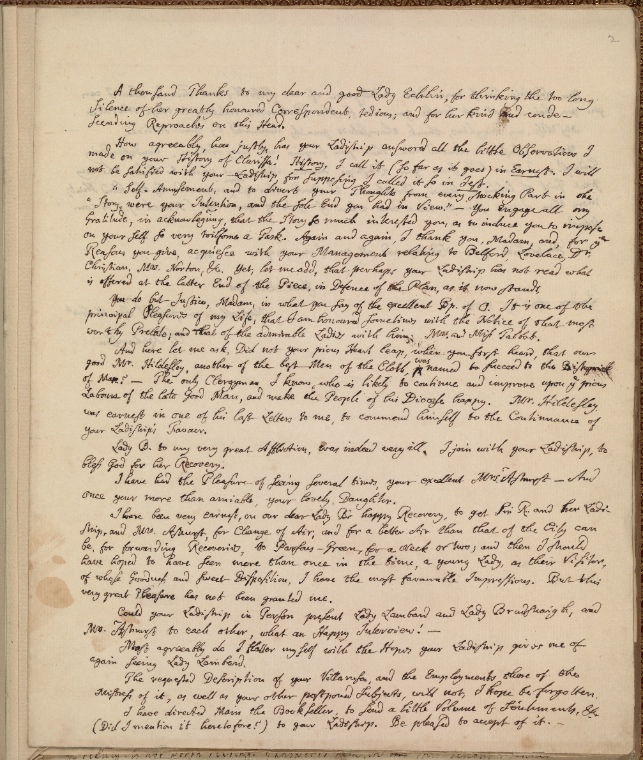 2
A thousand Thanks to my dear and good Lady Echlin, for thinking the too long
Silence of her greatly honoured Correspondent, tedious; and for her kind and conde-
scending Reproaches on this Head.
How agreeably, how justly, has your Ladiship answered all the little Observations I
made on your History of Clarissa! History, I call it (so far as it goes) in Earnest. I will
not be satisfied with your Ladiship, for supposing I called it so in Jest.
"Self-Amusement, and to divert your Thoughts from every shocking Part in the
"Story, were your Intention, and the sole End you had in View." — You engage all my
Gratitude, in acknowleging, that the Story so much interested you, as to induce you to impose
on your Self so very toilsome a Task. Again and again, I thank you, Madam, and, for ye
Reasons you give, acquiesce with your Management relating to Belford, Lovelace, Dr.
Christian, Mrs. Norton, &c. Yet, let me add, that perhaps your Ladiship has not read what
is offered at the latter End of the Piece, in Defence of the Plan, as it now stands.
You do but Justice, Madam, in what you say of the excellent Bp. of O. It is one of the
principal Pleasures of my Life, that I am honoured sometimes with the Notice of that most
worthy Prelate; and that of the admirable Ladies with him, Mrs. and Miss Talbot.
And here let me ask, Did not your pious Heart leap, when you first heard, that our
good Mr. Hildesley, another of the best Men of the Cloth, was named to succeed to the Bishoprick
of Man? — The only Clergyman, I know, who is likely to continue and improve upon ye pious
Labours of the late Good Man, and make the People of his Diocese happy. Mr. Hildesley
was earnest in one of his last Letters to me, to commend himself to the Continuance of
your Ladiship's Favour.
Lady B. to my very great Affliction, was indeed very ill. I join with your Ladiship, to
bless God for her Recovery.
I have had the Pleasure of seeing several times, your excellent Mrs. Ashurst — And
once your more than amiable, your lovely, Daughter.
I have been very earnest, on our dear Lady B's happy Recovery, to get Sir R. and her Ladi-
ship, and Mrs. Ashurst, for Change of Air, and for a better Air than that of the City can
be, for forwarding Recoveries, to Parsons-Green, for a Week or two; and then I should
have hoped to have seen more than once in the time, a young Lady, as their Visiter,
of whose Goodness and sweet Disposition, I have the most favourable Impressions. But this
very great Pleasure has not been granted me.
Could your Ladiship in Person present Lady Lambard and Lady Bradshaigh, and
Mrs. Ashurst to each other, what an Happy Interview! —
Most agreeably do I flatter myself with the Hopes your Ladiship gives me of
again seeing Lady Lambard.
The requested Description of your Villarusa, and the Employments there of the
Mistress of it, as well as your other postponed Subjects, will not, I hope be forgotten.
I have directed Main the Bookseller, to send a little Volume of Sentiments, &c.
(Did I mention it heretofore?) to your Ladiship. Be pleased to accept of it. —